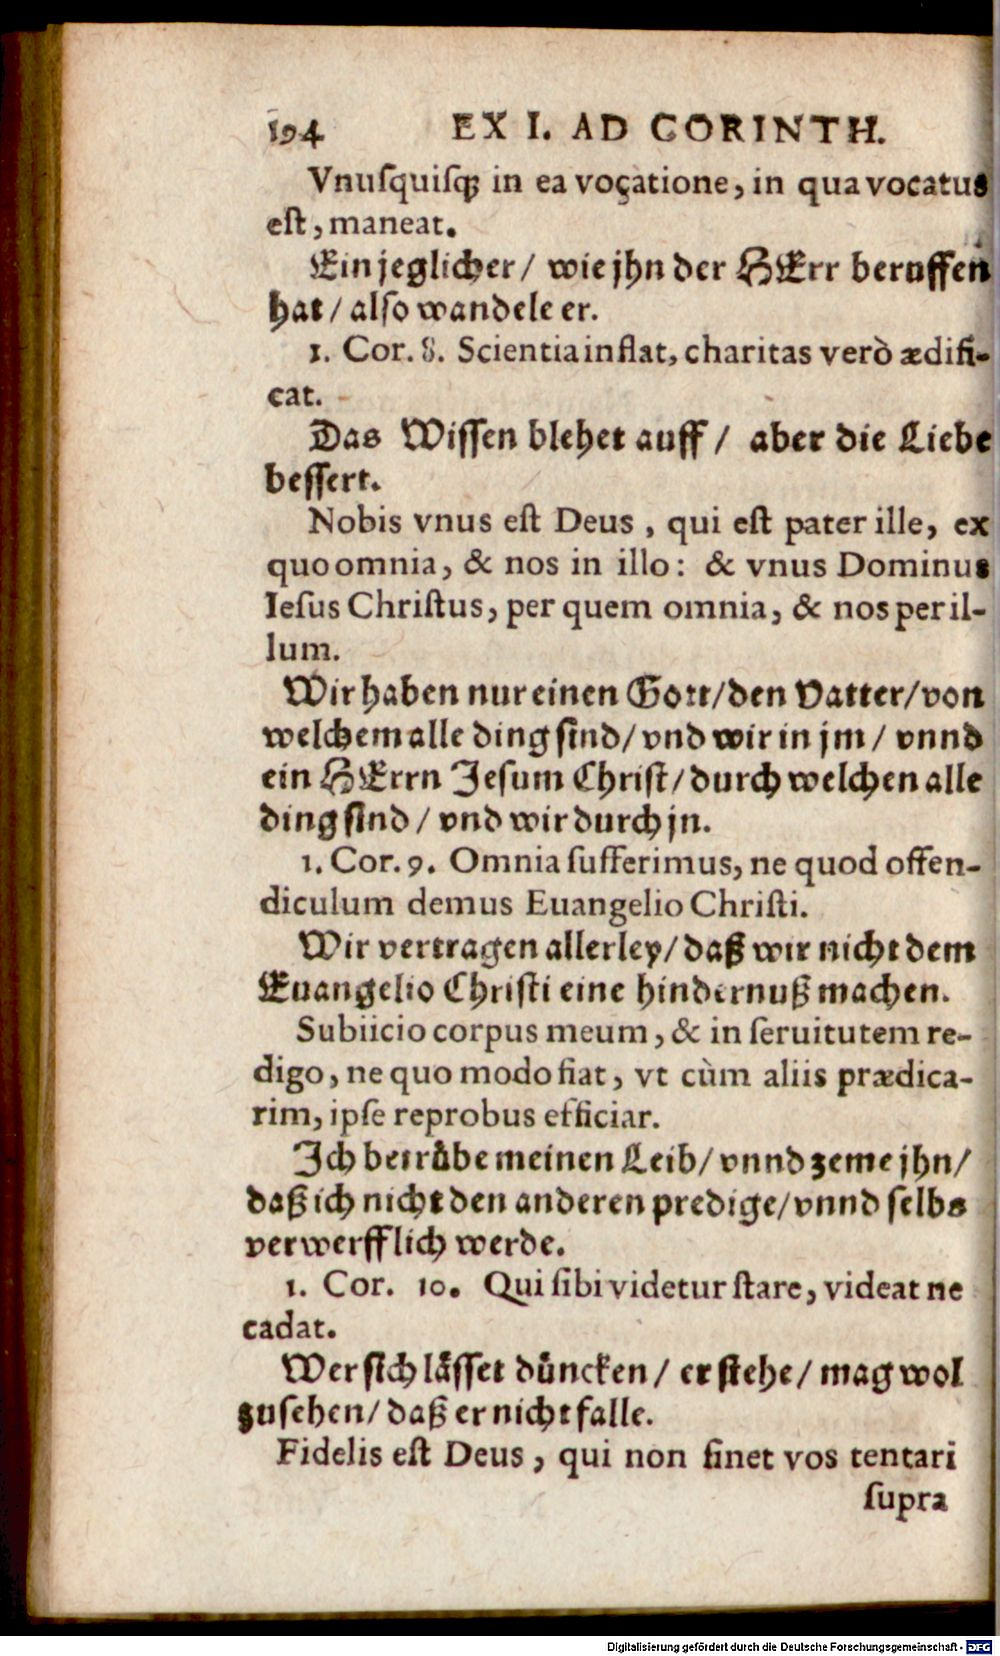 194 EX I. AD CORINTH.
Vnuſquiſq; in ea voçatione, in qua vocatus
eſt, maneat.
Ein jeglicher / wie jhn der HErr beruffen
hat / alſo wandele er.
1. Cor. 8. Scientia inflat, charitas verò ædifi-
cat.
Das Wiſſen blehet auff / aber die Liebe
beſſert.
Nobis vnus eſt Deus, qui eſt pater ille, ex
quo omnia, & nos in illo: & vnus Dominus
Ieſus Chriſtus, per quem omnia, & nos per il-
lum.
Wir haben nur einen Gott / den Vatter / von
welchem alle ding ſind / vnd wir in jm / vnnd
ein HErrn Jeſum Chriſt / durch welchen alle
ding ſind / vnd wir durch jn.
1. Cor. 9. Omnia ſufferimus, ne quod offen-
diculum demus Euangelio Chriſti.
Wir vertragen allerley / daß wir nicht dem
Euangelio Chriſti eine hindernuß machen.
Subiicio corpus meum, & in ſeruitutem re-
digo, ne quo modo fiat, vt cùm aliis prædica-
rim, ipſe reprobus efficiar.
Ich betrübe meinen Leib / vnnd zeme jhn /
daß ich nicht den anderen predige / vnnd ſelbs
verwerfflich werde.
1. Cor. 10. Qui ſibi videtur ſtare, videat ne
cadat.
Wer ſich läſſet düncken / er ſtehe / mag wol
zuſehen / daß er nicht falle.
Fidelis eſt Deus, qui non ſinet vos tentari
ſupra
Digitalisierung gefördert durch die Deutsche Forschungsgemeinschaft - DFG